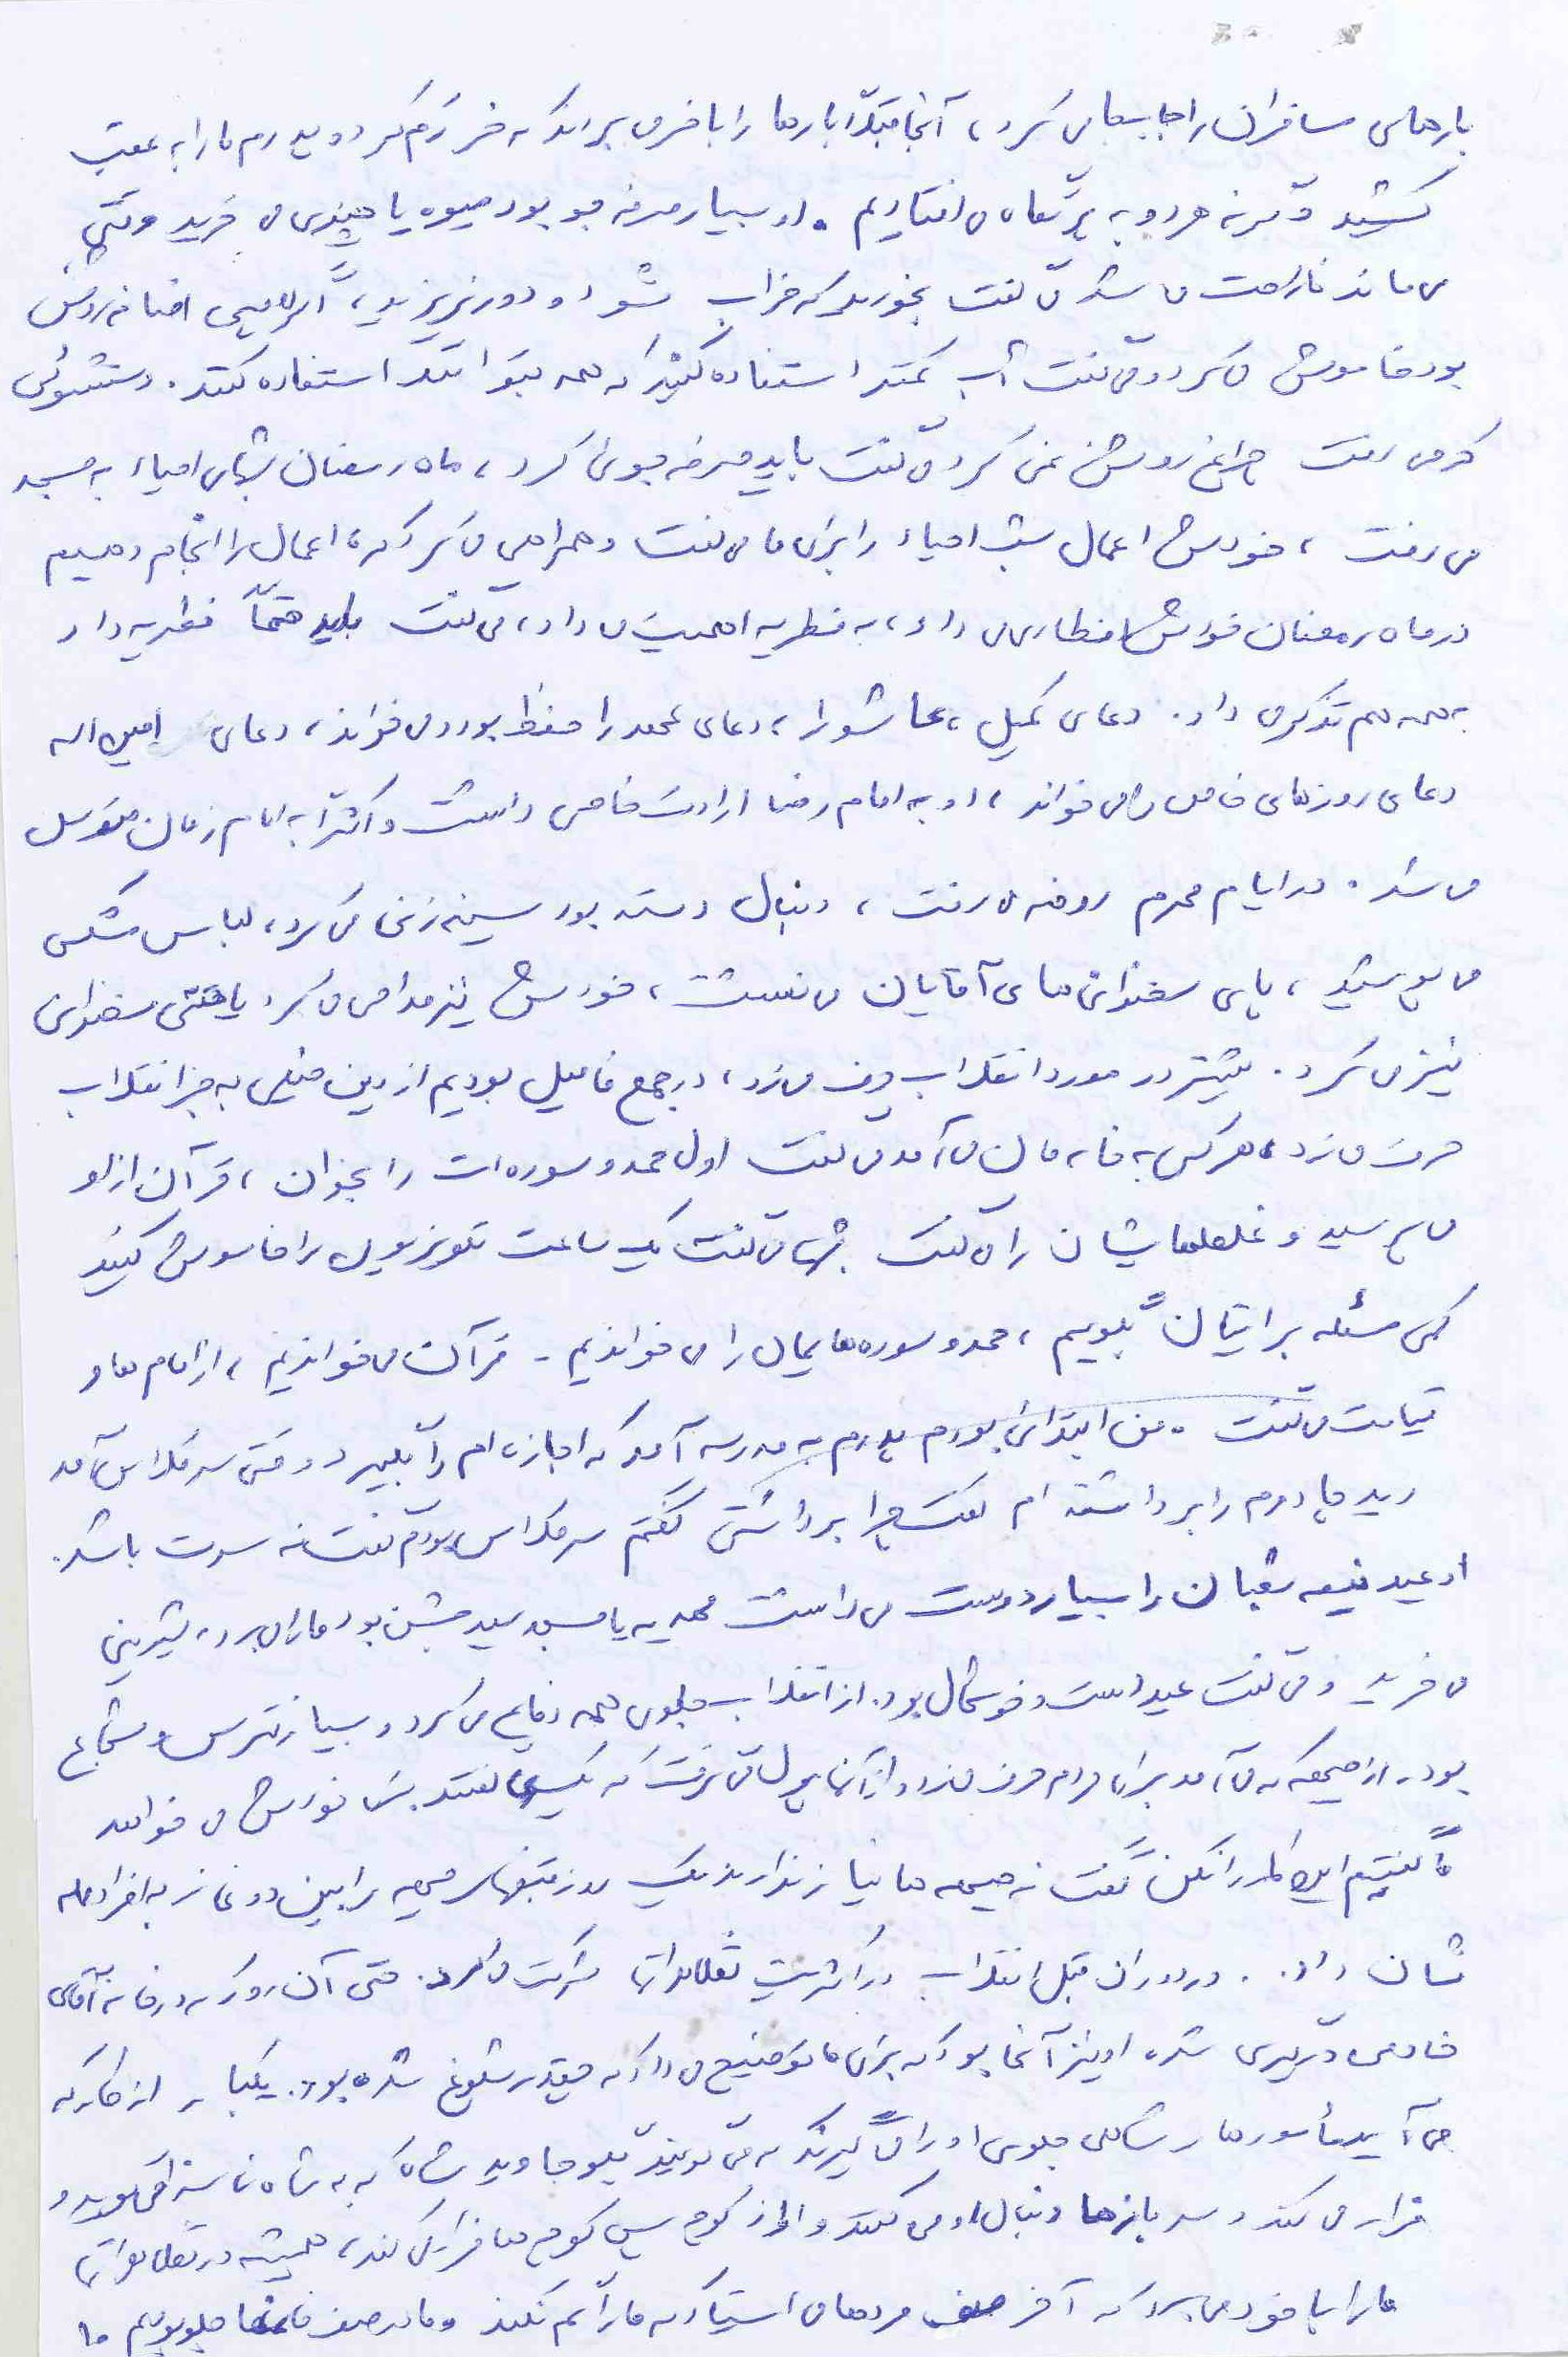 بارهای مسافران را جابجا می کرد، آنجا مجبّداً بارها را با خر می بردند که خر رم کرد و پدرم ما را به عقب
کشید و گرنه هر دو به پرتگاه می افتادیم. او بسیار صرفه جو بود میوه یا چیزی می خرید وقتی
می ماند ناراحت می شد می گفت بخورید که خراب نشود و دور نریزید، اگر لامپی اضافه روشن
بود خاموش می کرد و می گفت آب کمتر استفاده کنید که همه بتوانند استفاده کنند. دستشوئی
که می رفت چراغ روشن نمی کرد می گفت باید صرفه جوئی کرد، ماه رمضان شبهای احیاء به مسجد
می رفت، خودش اعمال شب احیاء را برای ما می گفت و همراهی می کرد که اعمال را انجام دهیم
در ماه رمضان خودش افطاری می داد، به فطریه اهمیت می داد، می گفت باید حتماً فطریه داد
به همه هم تذکر می داد. دعای کمیل، عاشورا، دعای عهد را حفظ بود و می خواند، دعای امین اله
دعای روزهای خاص را می خواند، او به امام رضا ارادت خاصی داشت و اکثراً به امام زمان متوسل
می شد. در ایام محرم روضه می رفت، دنبال دسته بود سینه زنی می کرد، لباس مشکی
می پوشید، پای سخنرانی های آقایان می نشست، خودش نیز مداحی می کرد یا حتی سخنرانی
نیز می کرد. بیشتر در مورد انقلاب حرف می زد، در جمع فامیل بودیم از دین خیلی به جز انقلاب
حرف می زد، هر کس به خانه مان می آمد می گفت اول حمد و سوره ات را بخوان، قرآن از او
می پرسید و غلطهایشان را می گفت شبها می گفت یک ساعت تلویزیون را خاموش کنید
کمی مسئله برایتان بگویم، حمد و سوره هایمان را می خواندیم - قرآن می خواندیم، از امام ها و
قیامت می گفت. من ابتدائی بودم پدرم به مدرسه آمد که اجازه ام را بگیرد وقتی سر کلاس آمد
دید چادرم را برداشته ام گفت چرا برداشتی گفتم سر کلاس بودم گفت نه سرت باشد.
او عید نیمه شعبان را بسیار دوست می داشت مهدیه یا مسجد سید جشن بود ما را می برد، شیرینی
می خرید و می گفت عید است و خوشحال بود. از انقلاب جلوی همه دفاع می کرد و بسیار نترس و شجاع
بود. از جبهه که می آمد برای مردم حرف می زد و از آنها پول می گرفت که یکسری گفتند برای خودش می خواهد
ما گفتیم این کار را نکن گفت نه جبهه ها نیاز دارند یک روز قبضهای جبهه را بین دو نماز به افراد محله
نشان داد. در دوران قبل انقلاب در اکثریت تظاهراتها شرکت می کرد. حتی آن روز که در خانه آقای
خادمی درگیری شد، او نیز آنجا بود که برای ما توضیح می داد که چقدر شلوغ شده بود. یکبار از کار که
می آید مأمورهای شاهی جلوی او را می گیرند که می گویند بگو جاوید شاه که به شاه ناسزا می گوید و
فرار می کند و سربازها دنبال او می کنند و او از کوچه پس کوچه ها فرار می کند، همیشه در تظاهراتها
ما را با خود می برد که آخر صف مردها می ایستاد که ما را گم نکند و ما در صف خانمها جلو بودیم ما